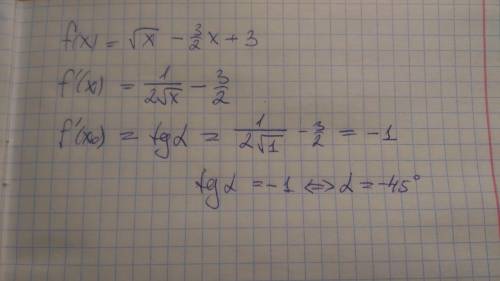 f(x) = √x - 3/2 x + 3
f'(x) = 1/(2√x) - 3/2
f'(x₀) = tg α = 1/(2√1) - 3/2 = -1
tg α = -1 ⇔ α = -45°